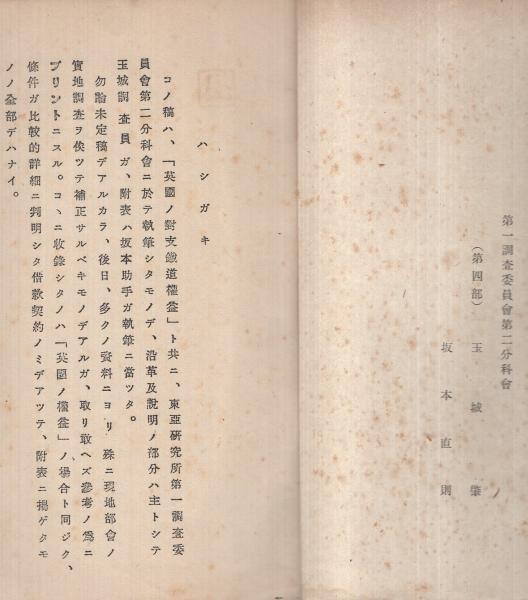 第一調査委員會第二分科會
(第四部) 玉城肇
坂本直則
ハシガキ
コノ稿ハ、「英國ノ對支鐵道權益」ト共ニ、東亞研究所第一調査委
員會第二分科會ニ於テ執筆シタモノデ、沿革及說明ノ部分ハ主トシテ
玉城調査員ガ、附表ハ坂本助手ガ執筆ニ當ツタ。
勿論未定稿デアルカラ、後日、多クノ資料ニヨリ 殊ニ現地部會ノ
實地調査ヲ俟ツテ補正サルベキモノデアルガ、取リ敢ヘズ參考ノ爲ニ
プリントニスル。コヽニ收錄シタノハ「英國ノ權益」ノ場合ト同ジク、
條件ガ比較的詳細ニ判明シタ借款契約ノミデアツテ、附表ニ揭ゲタモ
ノノ全部デハナイ。